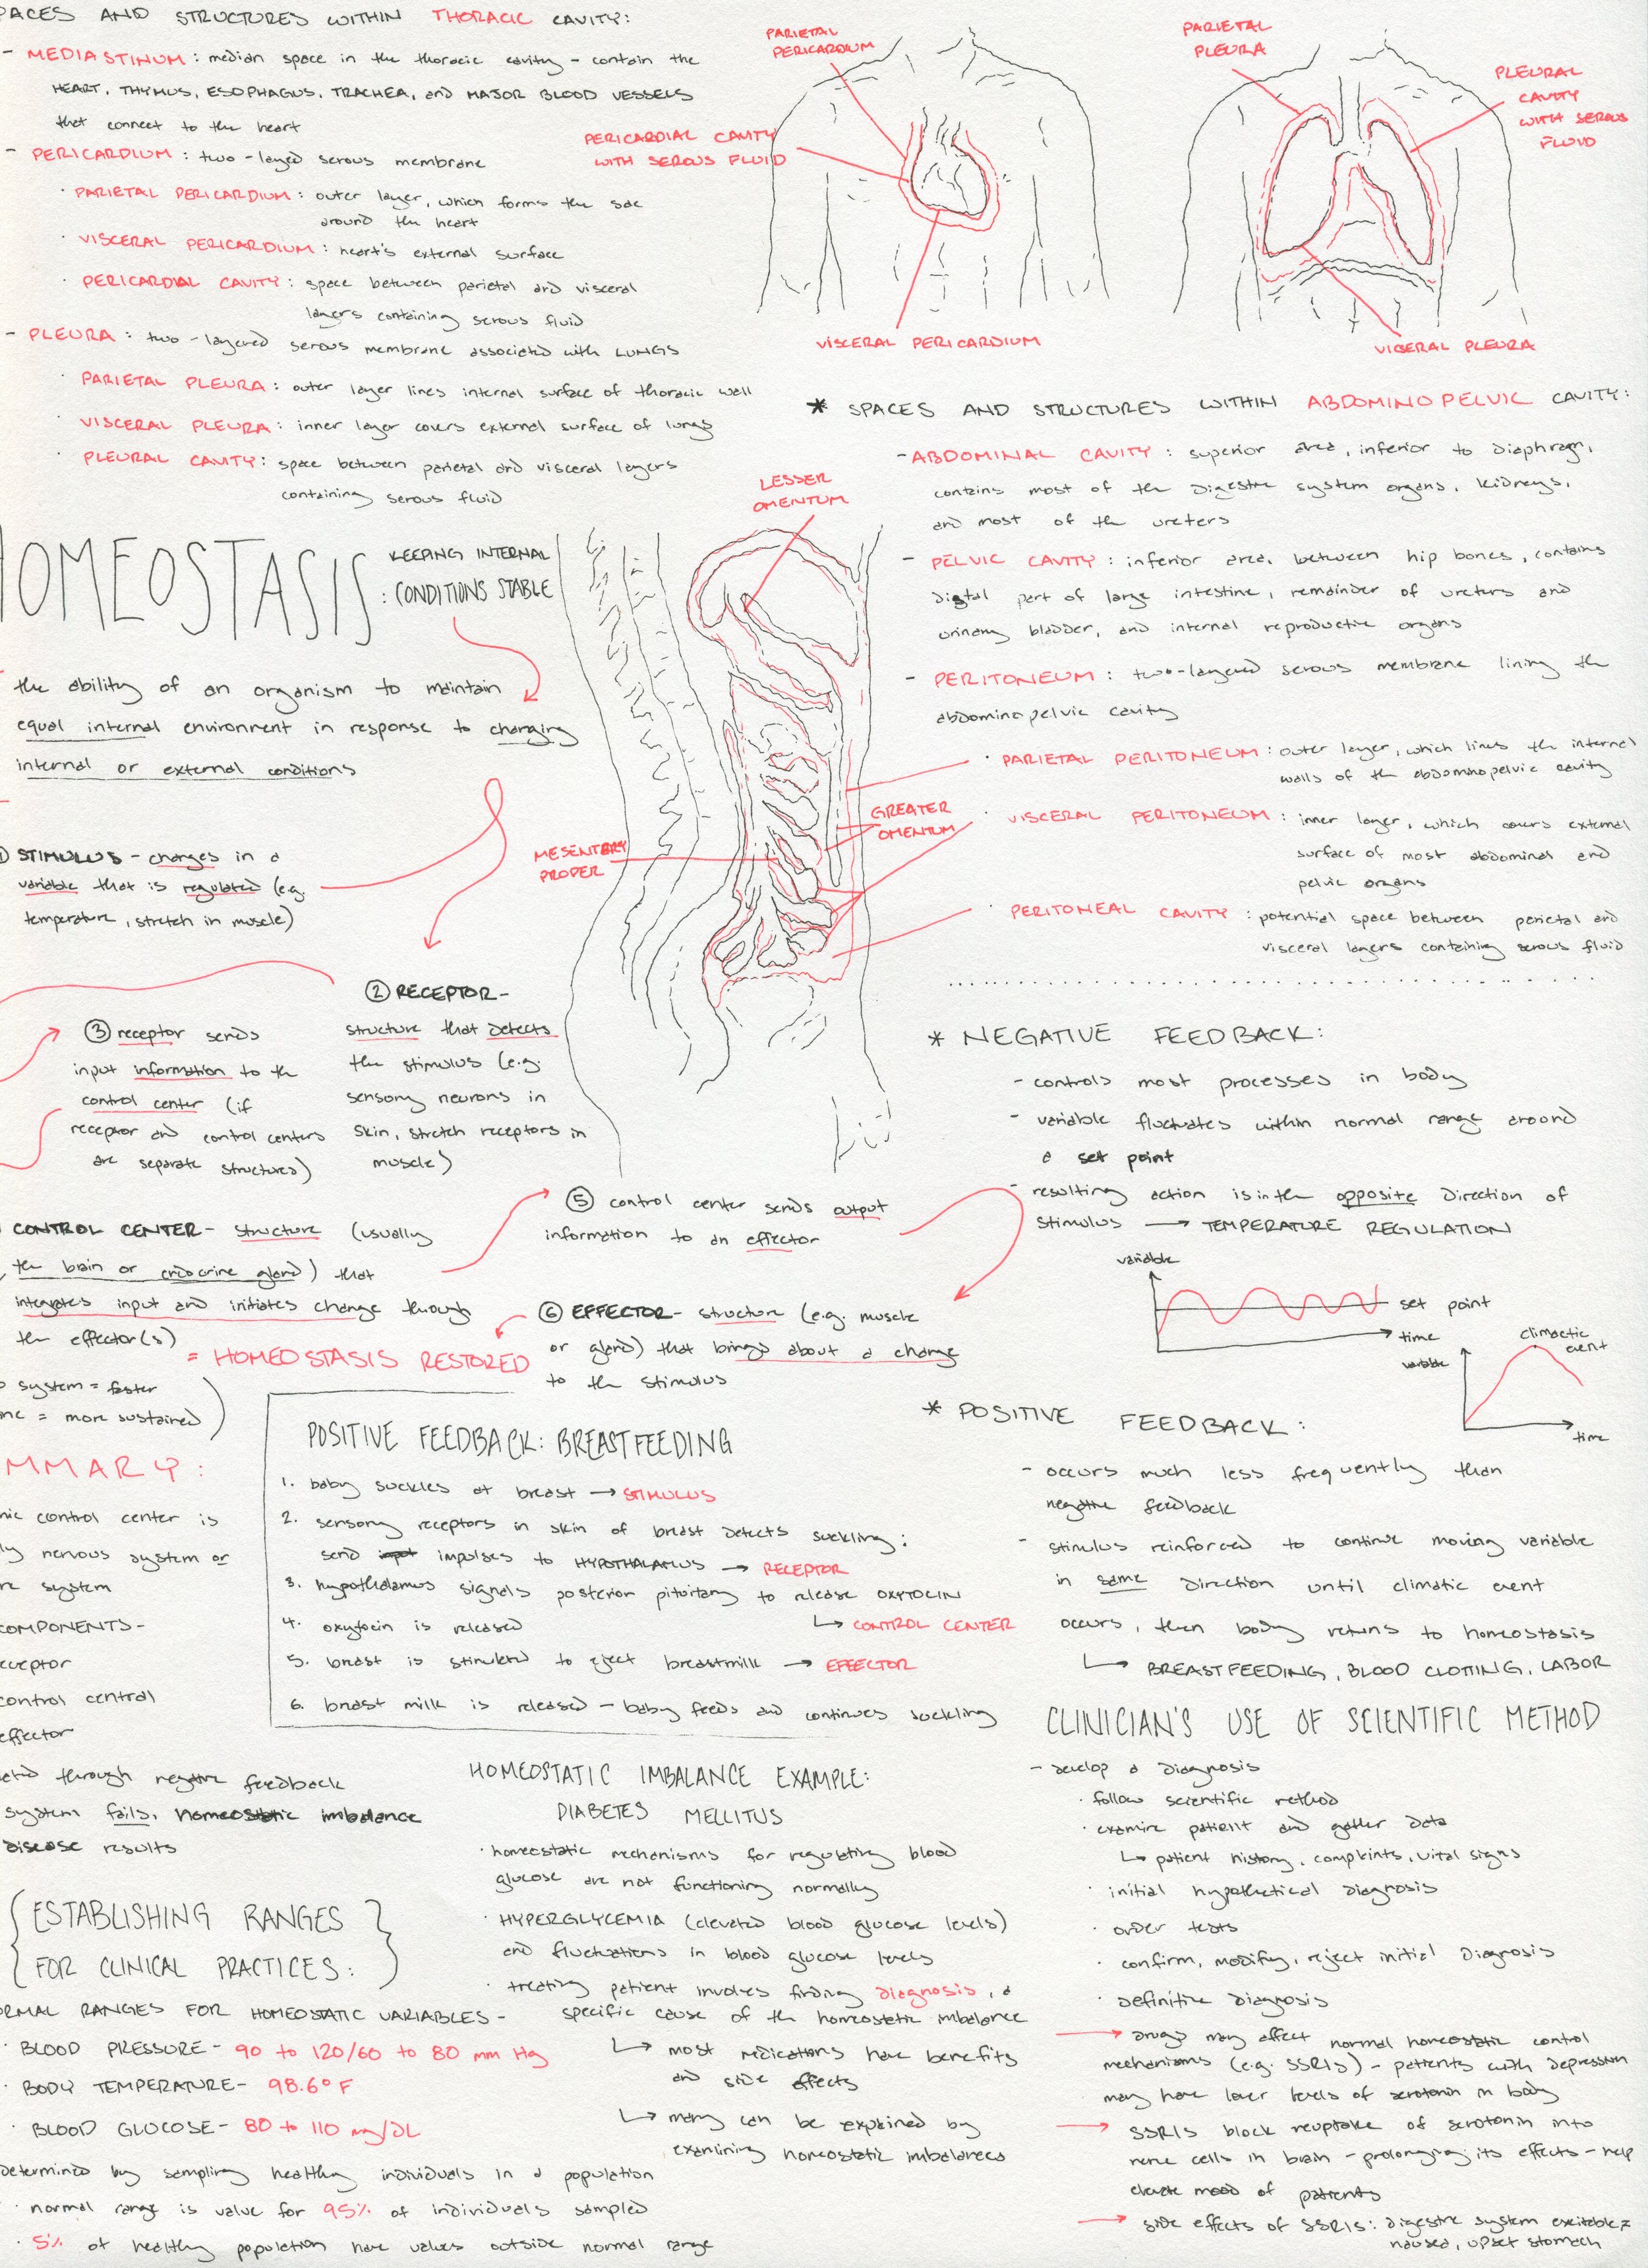 PACES AND STRUCTURES WITHIN THORACIC CAVITY:
- MEDIASTINUM: median space in the thoracic cavity - contain the
HEART, THYMUS, ESOPHAGUS, TRACHEA, and MAJOR BLOOD VESSELS
that connect to the heart
- PERICARDIUM: two-layed serous membrane
· PARIETAL PERICARDIUM: outer layer, which forms the sac
around the heart
· VISCERAL PERICARDIUM: heart's external surface
· PERICARDIAL CAVITY: space between parietal and visceral
layers containing serous fluid
- PLEURA: two-layered serous membrane associated with LUNGS
· PARIETAL PLEURA: outer layer lines internal surface of thoracic wall
· VISCERAL PLEURA: inner layer covers external surface of lungs
· PLEURAL CAVITY: space between parietal and visceral layers
containing serous fluid
PARIETAL
PERICARDIUM
PERICARDIAL CAVITY
WITH SEROUS FLUID
VISCERAL PERICARDIUM
PARIETAL
PLEURA
PLEURAL
CAVITY
WITH SEROUS
FLUID
VISCERAL PLEURA
* SPACES AND STRUCTURES WITHIN ABDOMINOPELVIC CAVITY:
- ABDOMINAL CAVITY: superior area, inferior to diaphragm,
contains most of the digestive system organs, kidneys,
and most of the ureters
- PELVIC CAVITY: inferior area, between hip bones, contains
distal part of large intestine, remainder of ureters and
urinary bladder, and internal reproductive organs
- PERITONEUM: two-layered serous membrane lining the
abdominopelvic cavity
· PARIETAL PERITONEUM: outer layer, which lines the internal
walls of the abdominopelvic cavity
· VISCERAL PERITONEUM: inner layer, which covers external
surface of most abdominal and
pelvic organs
· PERITONEAL CAVITY: potential space between parietal and
visceral layers containing serous fluid
LESSER
OMENTUM
GREATER
OMENTUM
MESENTERY
PROPER
HOMEOSTASIS: KEEPING INTERNAL
CONDITIONS STABLE
the ability of an organism to maintain
equal internal environment in response to changing
internal or external conditions
① STIMULUS - changes in a
variable that is regulated (e.g.
temperature, stretch in muscle)
② RECEPTOR-
structure that detects
the stimulus (e.g.
sensory neurons in
skin, stretch receptors in
muscle)
③ receptor sends
input information to the
control center (if
receptor and control centers
are separate structures)
CONTROL CENTER- structure (usually
the brain or endocrine gland) that
integrates input and initiates change through
the effector(s)
⑤ control center sends output
information to an effector
⑥ EFFECTOR- structure (e.g. muscle
or gland) that brings about a change
to the stimulus
= HOMEOSTASIS RESTORED
system = faster
ne = more sustained)
* NEGATIVE FEEDBACK:
- controls most processes in body
- variable fluctuates within normal range around
a set point
- resulting action is in the opposite direction of
stimulus → TEMPERATURE REGULATION
variable
set point
time
variable
climactic
event
time
* POSITIVE FEEDBACK:
- occurs much less frequently than
negative feedback
- stimulus reinforced to continue moving variable
in same direction until climatic event
occurs, then body returns to homeostasis
↳ BREASTFEEDING, BLOOD CLOTTING, LABOR
POSITIVE FEEDBACK: BREASTFEEDING
1. baby suckles at breast → STIMULUS
2. sensory receptors in skin of breast detects suckling;
send impulses to HYPOTHALAMUS → RECEPTOR
3. hypothalamus signals posterior pituitary to release OXYTOCIN
↳ CONTROL CENTER
4. oxytocin is released
5. breast is stimulated to eject breastmilk → EFFECTOR
6. breast milk is released - baby feeds and continues suckling
MMARY:
mic control center is
ly nervous system or
re system
COMPONENTS-
eceptor
control central
effector
ated through negative feedback
system fails, homeostatic imbalance
disease results
HOMEOSTATIC IMBALANCE EXAMPLE:
DIABETES MELLITUS
· homeostatic mechanisms for regulating blood
glucose are not functioning normally
· HYPERGLYCEMIA (elevated blood glucose levels)
and fluctuations in blood glucose levels
· treating patient involves finding diagnosis, a
specific cause of the homeostatic imbalance
↳ most medications have benefits
and side effects
↳ many can be explained by
examining homeostatic imbalances
{ESTABLISHING RANGES
FOR CLINICAL PRACTICES:}
RMAL RANGES FOR HOMEOSTATIC VARIABLES-
· BLOOD PRESSURE- 90 to 120/60 to 80 mm Hg
· BODY TEMPERATURE- 98.6° F
· BLOOD GLUCOSE- 80 to 110 mg/dL
determined by sampling healthy individuals in a population
· normal range is value for 95% of individuals sampled
· 5% of healthy population have values outside normal range
CLINICIAN'S USE OF SCIENTIFIC METHOD
- develop a diagnosis
· follow scientific method
· examine patient and gather data
↳ patient history, complaints, vital signs
· initial hypothetical diagnosis
· order tests
· confirm, modify, reject initial diagnosis
· definitive diagnosis
→ drugs may affect normal homeostatic control
mechanisms (e.g. SSRIS) - patients with depression
may have lower levels of serotonin in body
→ SSRIS block reuptake of serotonin into
nerve cells in brain - prolonging its effects - help
elevate mood of patients
→ side effects of SSRIS: digestive system excitable =
nausea, upset stomach